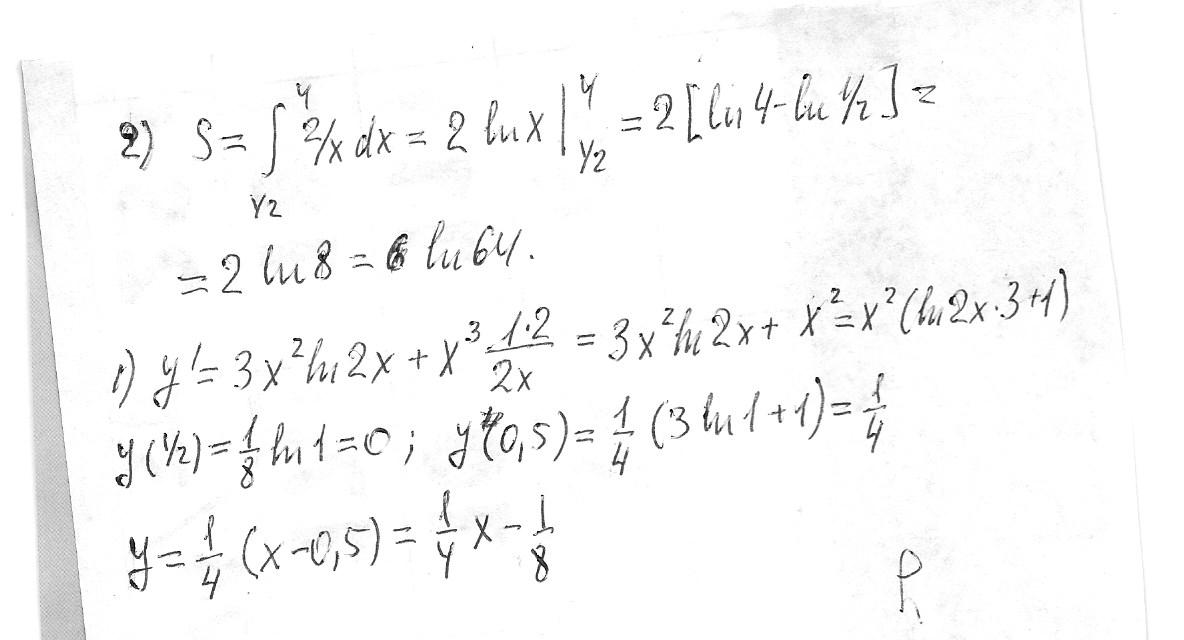 2) S = ∫_{1/2}^{4} 2/x dx = 2 ln x |_{1/2}^{4} = 2 [ln 4 - ln 1/2] =
= 2 ln 8 = ln 64.
1) y' = 3x² ln 2x + x³ \frac{1·2}{2x} = 3x² ln 2x + x² = x² (ln 2x · 3 + 1)
y(1/2) = \frac{1}{8} ln 1 = 0 ; y'(0,5) = \frac{1}{4} (3 ln 1 + 1) = \frac{1}{4}
y = \frac{1}{4} (x - 0,5) = \frac{1}{4} x - \frac{1}{8}